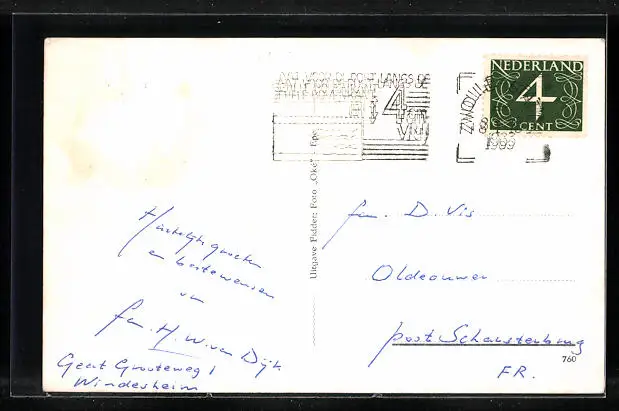 NEDERLAND
4
CENT
ZWOLLE
LANGS DE
4
Uitgave Fidder: Foto „Oké" - Epe
Hartelijke groeten
en beste wensen
van
fam. H. W. van Dijk
Geert Grooteweg 1
Windesheim
fam. D. Vis
Oldeouwer
post Scharsterbrug
FR.
760